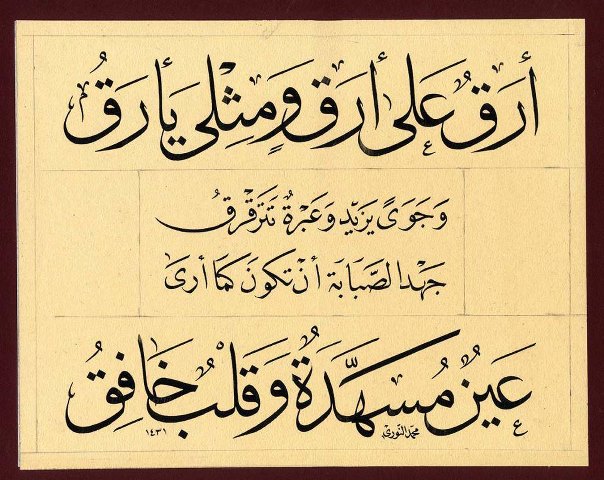 أَرَقٌ عَلَى أَرَقٍ وَمِثْلِي يَأْرَقُ
وَجَوًى يَزِيدُ وَعَبْرَةٌ تَتَرَقْرَقُ
جُهْدُ الصَّبَابَةِ أَنْ تَكُونَ كَمَا أَرَى
عَيْنٌ مُسَهَّدَةٌ وَقَلْبٌ خَافِقُ
محمد النوري
١٤٣١